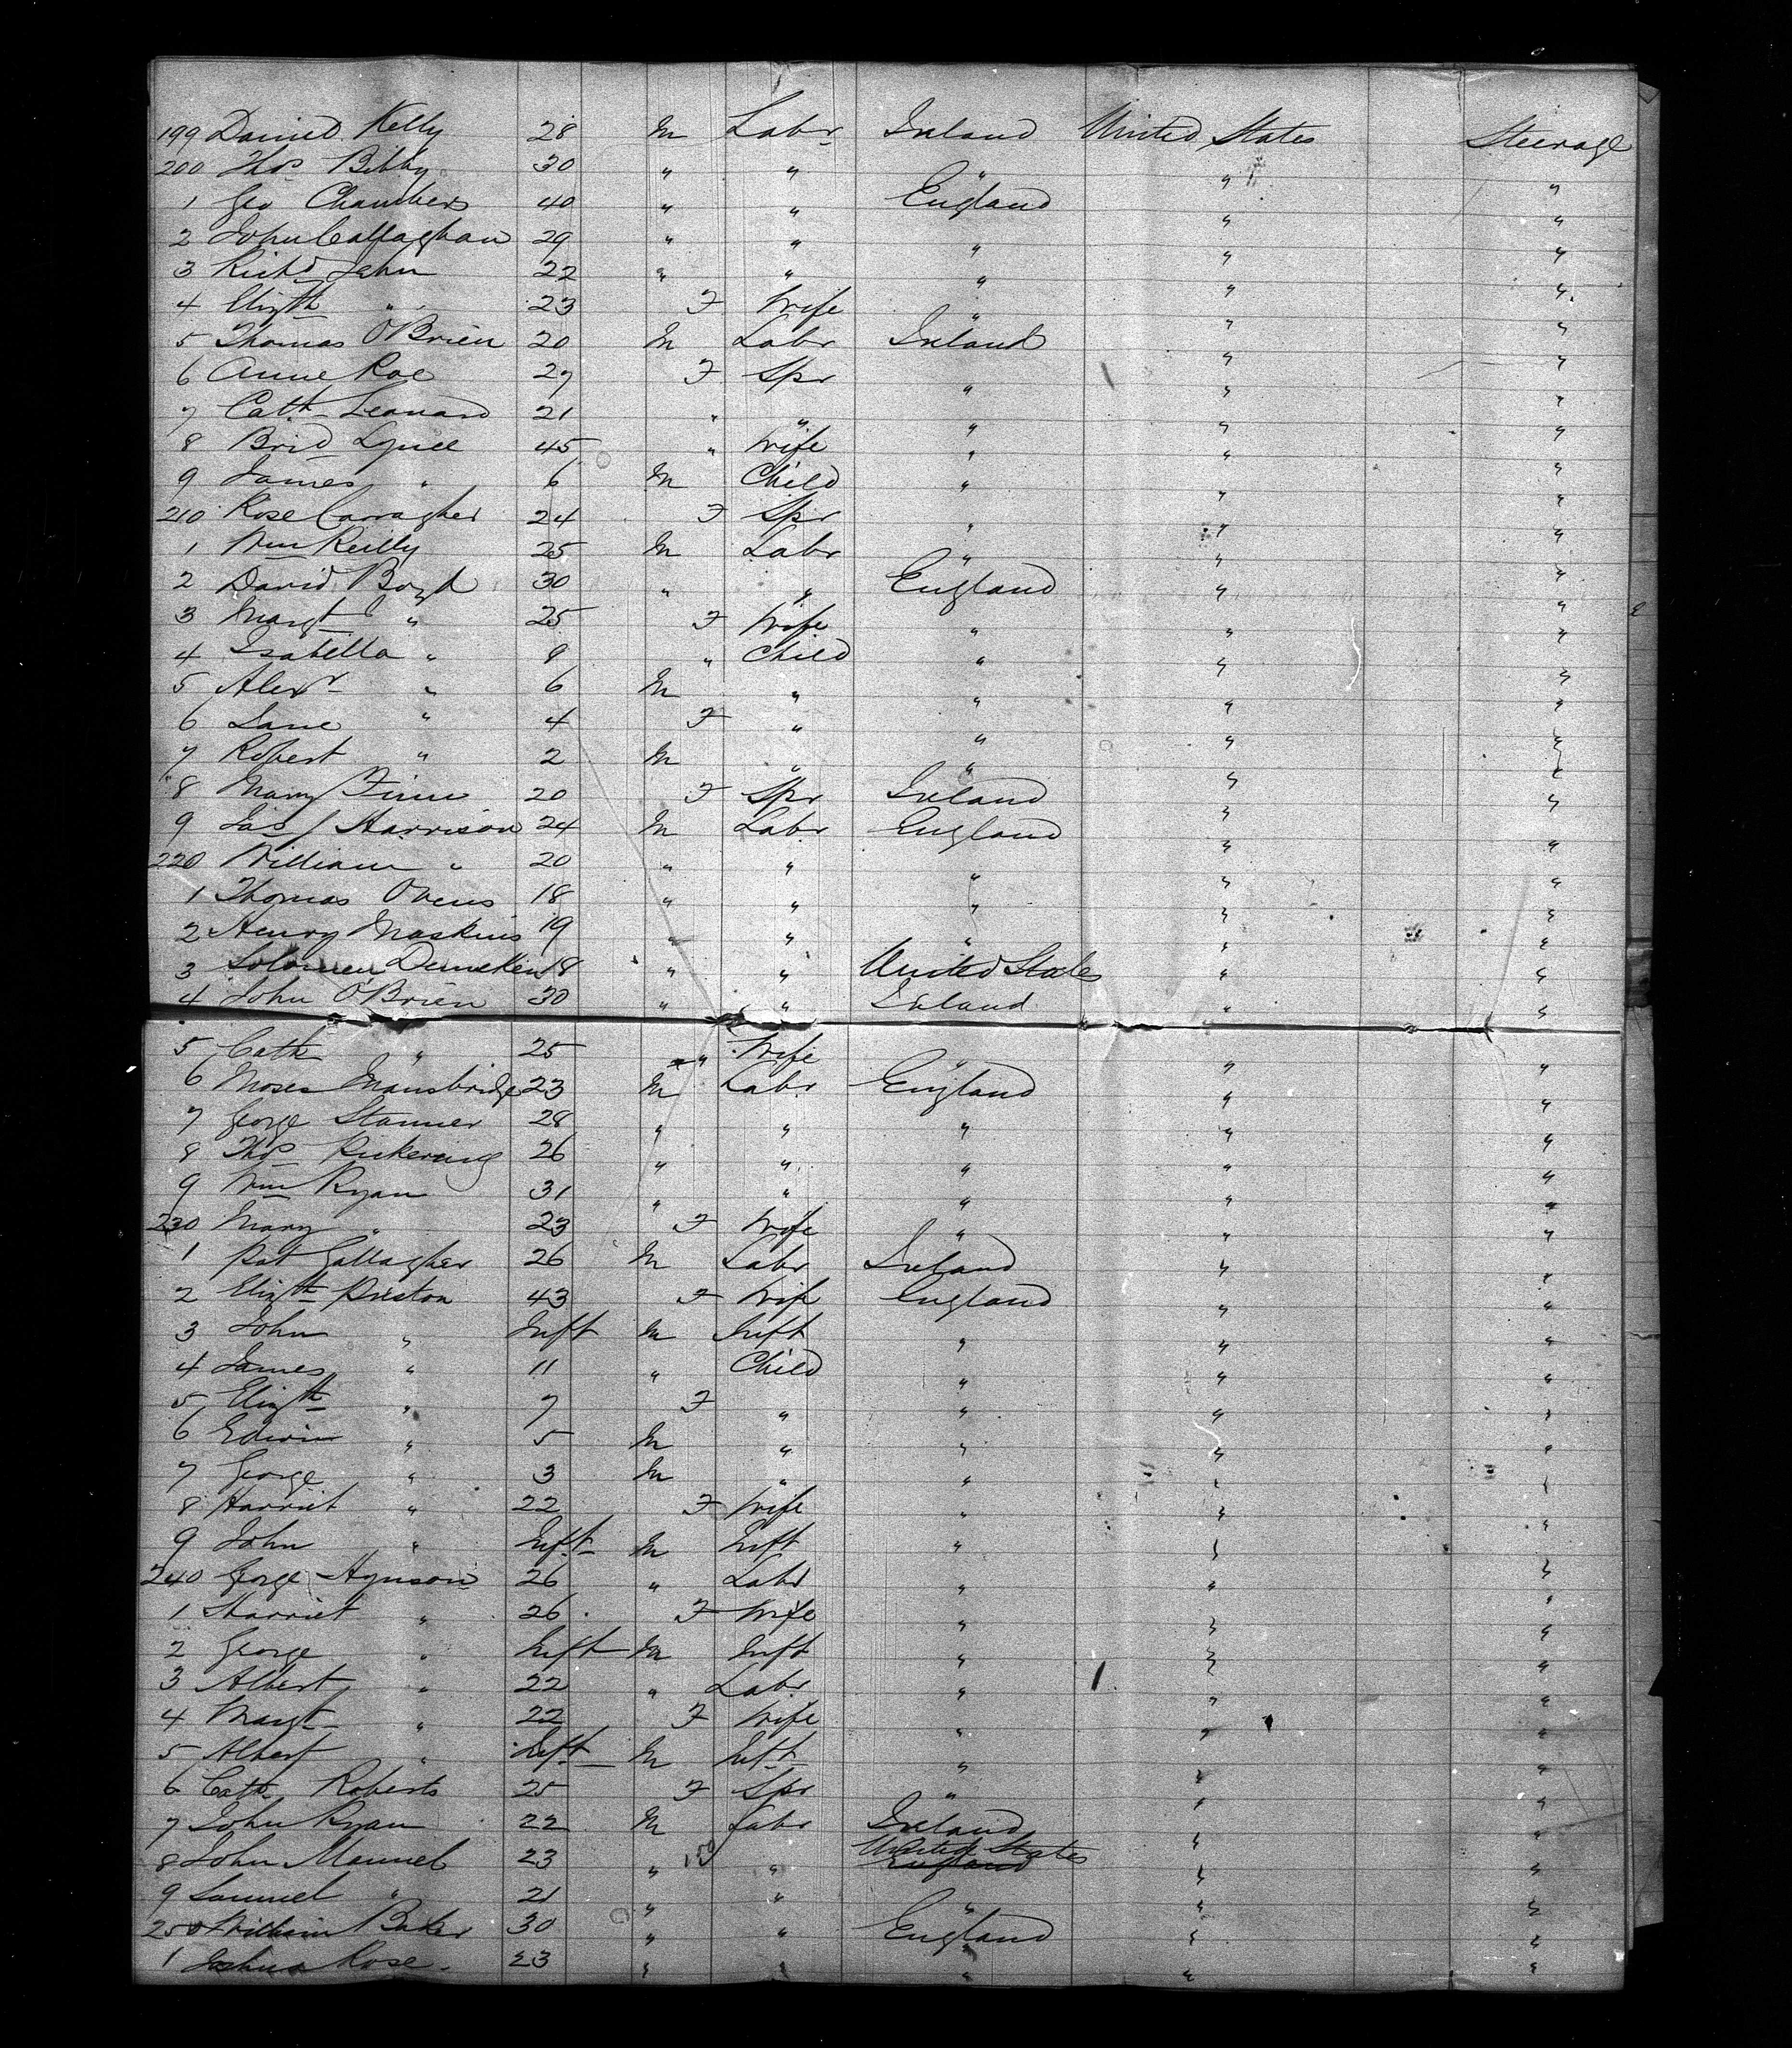 199 Daniel Kelly 28 M Labr Ireland United States Steerage
200 Thos Bibby 30 " " " " "
1 Geo Chambers 40 " " England " "
2 John Callaghan 29 " " " " "
3 Richd Jahn 22 " " " " "
4 Elizth " 23 F Wife " " "
5 Thomas O'Brien 20 M Labr Ireland " "
6 Anne Roe 27 F Spr " " "
7 Cath Leonard 21 " " " " "
8 Brid Lynee 45 " Wife " " "
9 James " 6 M Child " " "
210 Rose Carragher 24 F Spr " " "
1 Wm Reilly 25 M Labr " " "
2 David Boyd 30 " " England " "
3 Margt " 25 F Wife " " "
4 Isabella " 9 " Child " " "
5 Alexr " 6 M " " " "
6 Jane " 4 F " " " "
7 Robert " 2 M " " " "
8 Mary Finn 20 F Spr Ireland " "
9 Jas Harrison 24 M Labr England " "
220 William " 20 " " " " "
1 Thomas Owens 18 " " " " "
2 Henry Maskins 19 " " " " "
3 Solomon 18 " " United States " "
4 John O'Brien 30 " " Ireland " "
5 Cath " 25 " Wife " " "
6 Moses Mansbridge 23 M Labr England " "
7 George Stanner 28 " " " " "
8 Thos Pickering 26 " " " " "
9 Wm Ryan 31 " " " " "
230 Mary " 23 F Wife " " "
1 Pat Gallagher 26 M Labr Ireland " "
2 Elizth Preston 43 F Wife England " "
3 John " Inft M Inft " " "
4 James " 11 " Child " " "
5 Elizth " 7 F " " " "
6 Edwin " 5 M " " " "
7 George " 3 M " " " "
8 Harriet " 22 F Wife " " "
9 John " Inft M Inft " " "
240 George Hynson 26 " Labr " " "
1 Harriet " 26 F Wife " " "
2 George " Inft M Inft " " "
3 Albert " 22 " Labr " " "
4 Margt " 22 F Wife " " "
5 Albert " Inft M Inft " " "
6 Cath Roberts 25 F Spr " " "
7 John Ryan 22 M Labr Ireland " "
8 John Mannel 23 " " United States England " "
9 Samuel " 21 " " " " "
250 William Baker 30 " " England " "
1 Joshua Rose 23 " " " " "